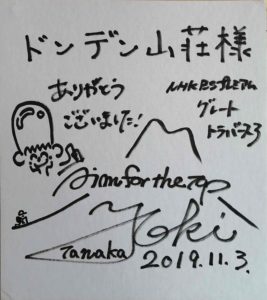 ドンデン山荘様
ありがとう
ございました!
NHK BSプレミアム
グレート
トラバース3
Aim for the Top
Yoki
Tanaka
2019.11.3.